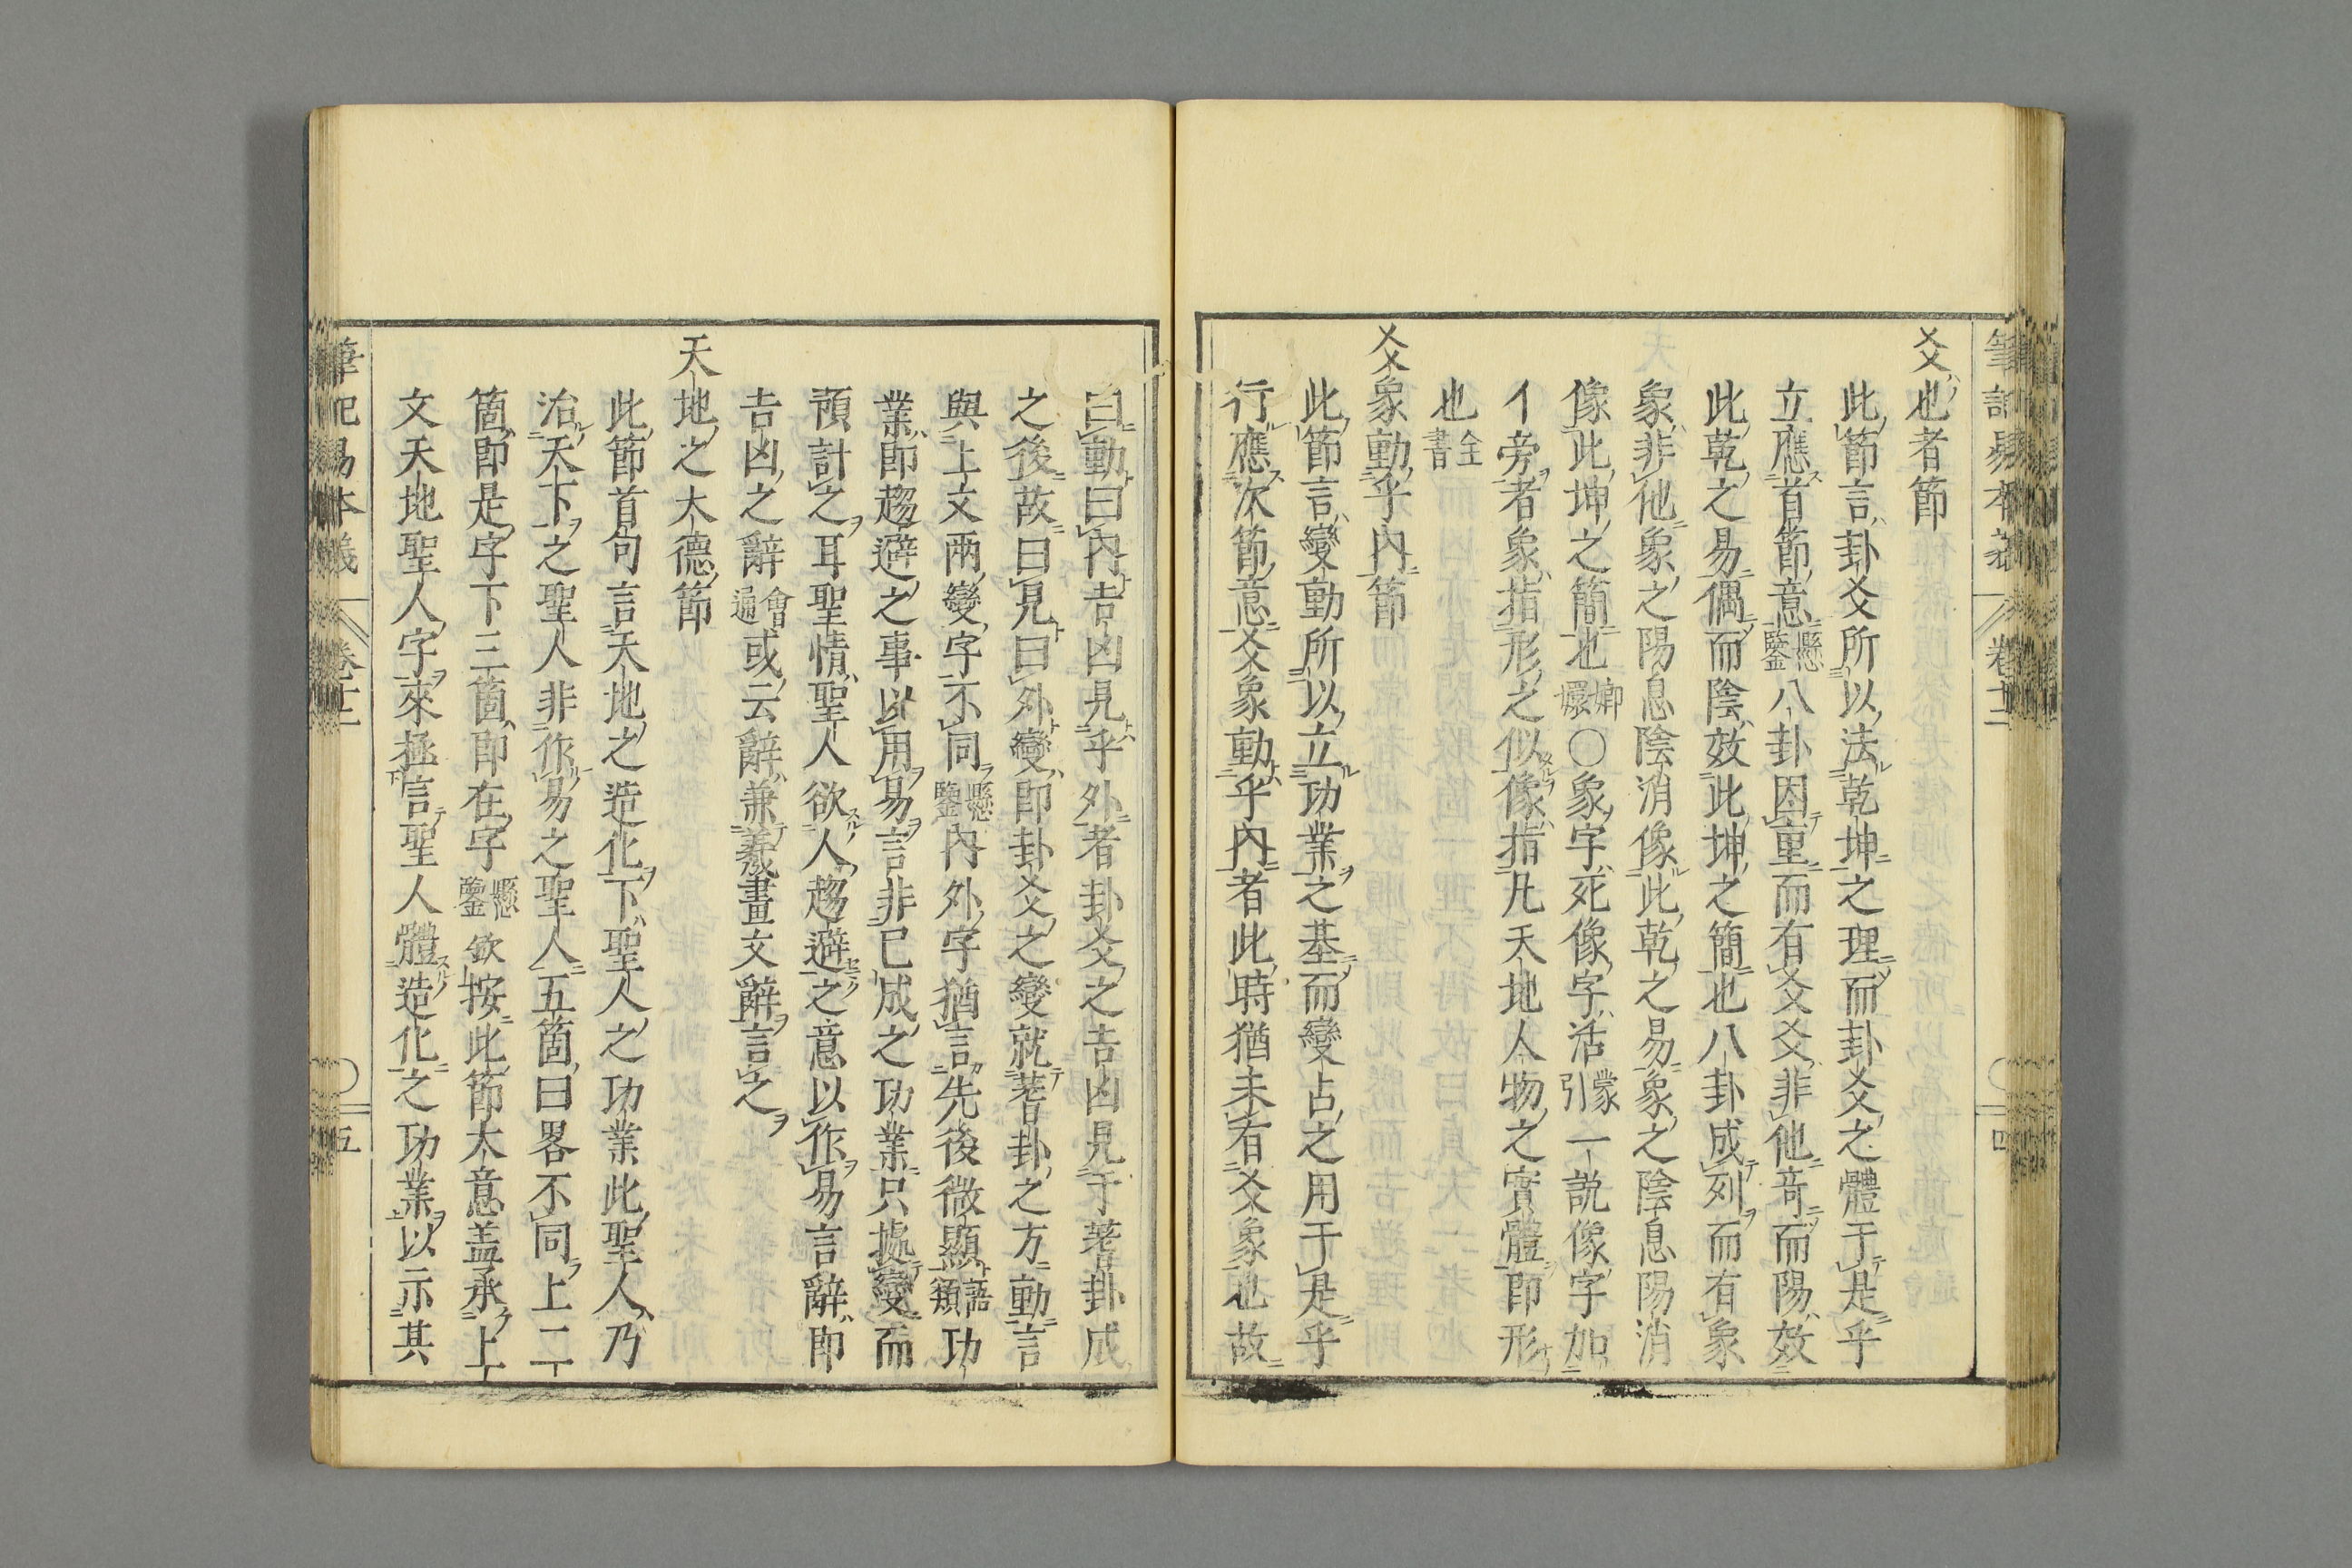 筆記易本義 卷十二 四
爻也者節
此節言卦爻所以法乾坤之理而卦爻之體于是乎
立應首節意懸鑒八卦因重而有爻爻非他竒而陽效
此乾之易偶而陰效此坤之簡也八卦成列而有象
象非他象之陽息陰消像此乾之易象之陰息陽消
像此坤之簡也嫏嬛〇象字死像字活蒙引一說像字加
亻旁者象指形之似像指凡天地人物之實體即形
也全書
爻象動乎內節
此節言變動所以立功業之基而變占之用于是乎
行應次節意爻象動乎內者此時猶未有爻象也故
曰動曰內吉凶見乎外者卦爻之吉凶見于蓍卦成
之後故曰見曰外變即卦爻之變就蓍卦之方動言
與上文兩變字不同懸鑒內外字猶言先後微顯語類功
業即趨避之事以用易言非已成之功業只據變而
預計之耳聖情聖人欲人趨避之意以作易言辭即
吉凶之辭會通或云辭兼羲畫文辭言之
天地之大德節
此節首句言天地之造化下聖人之功業此聖人乃
治天下之聖人非作易之聖人五箇曰畧不同上二
箇即是字下三箇即在字懸鑒欽按此節大意盖承上
文天地聖人字來極言聖人體造化之功業以示其
筆記易本義 卷十二 五